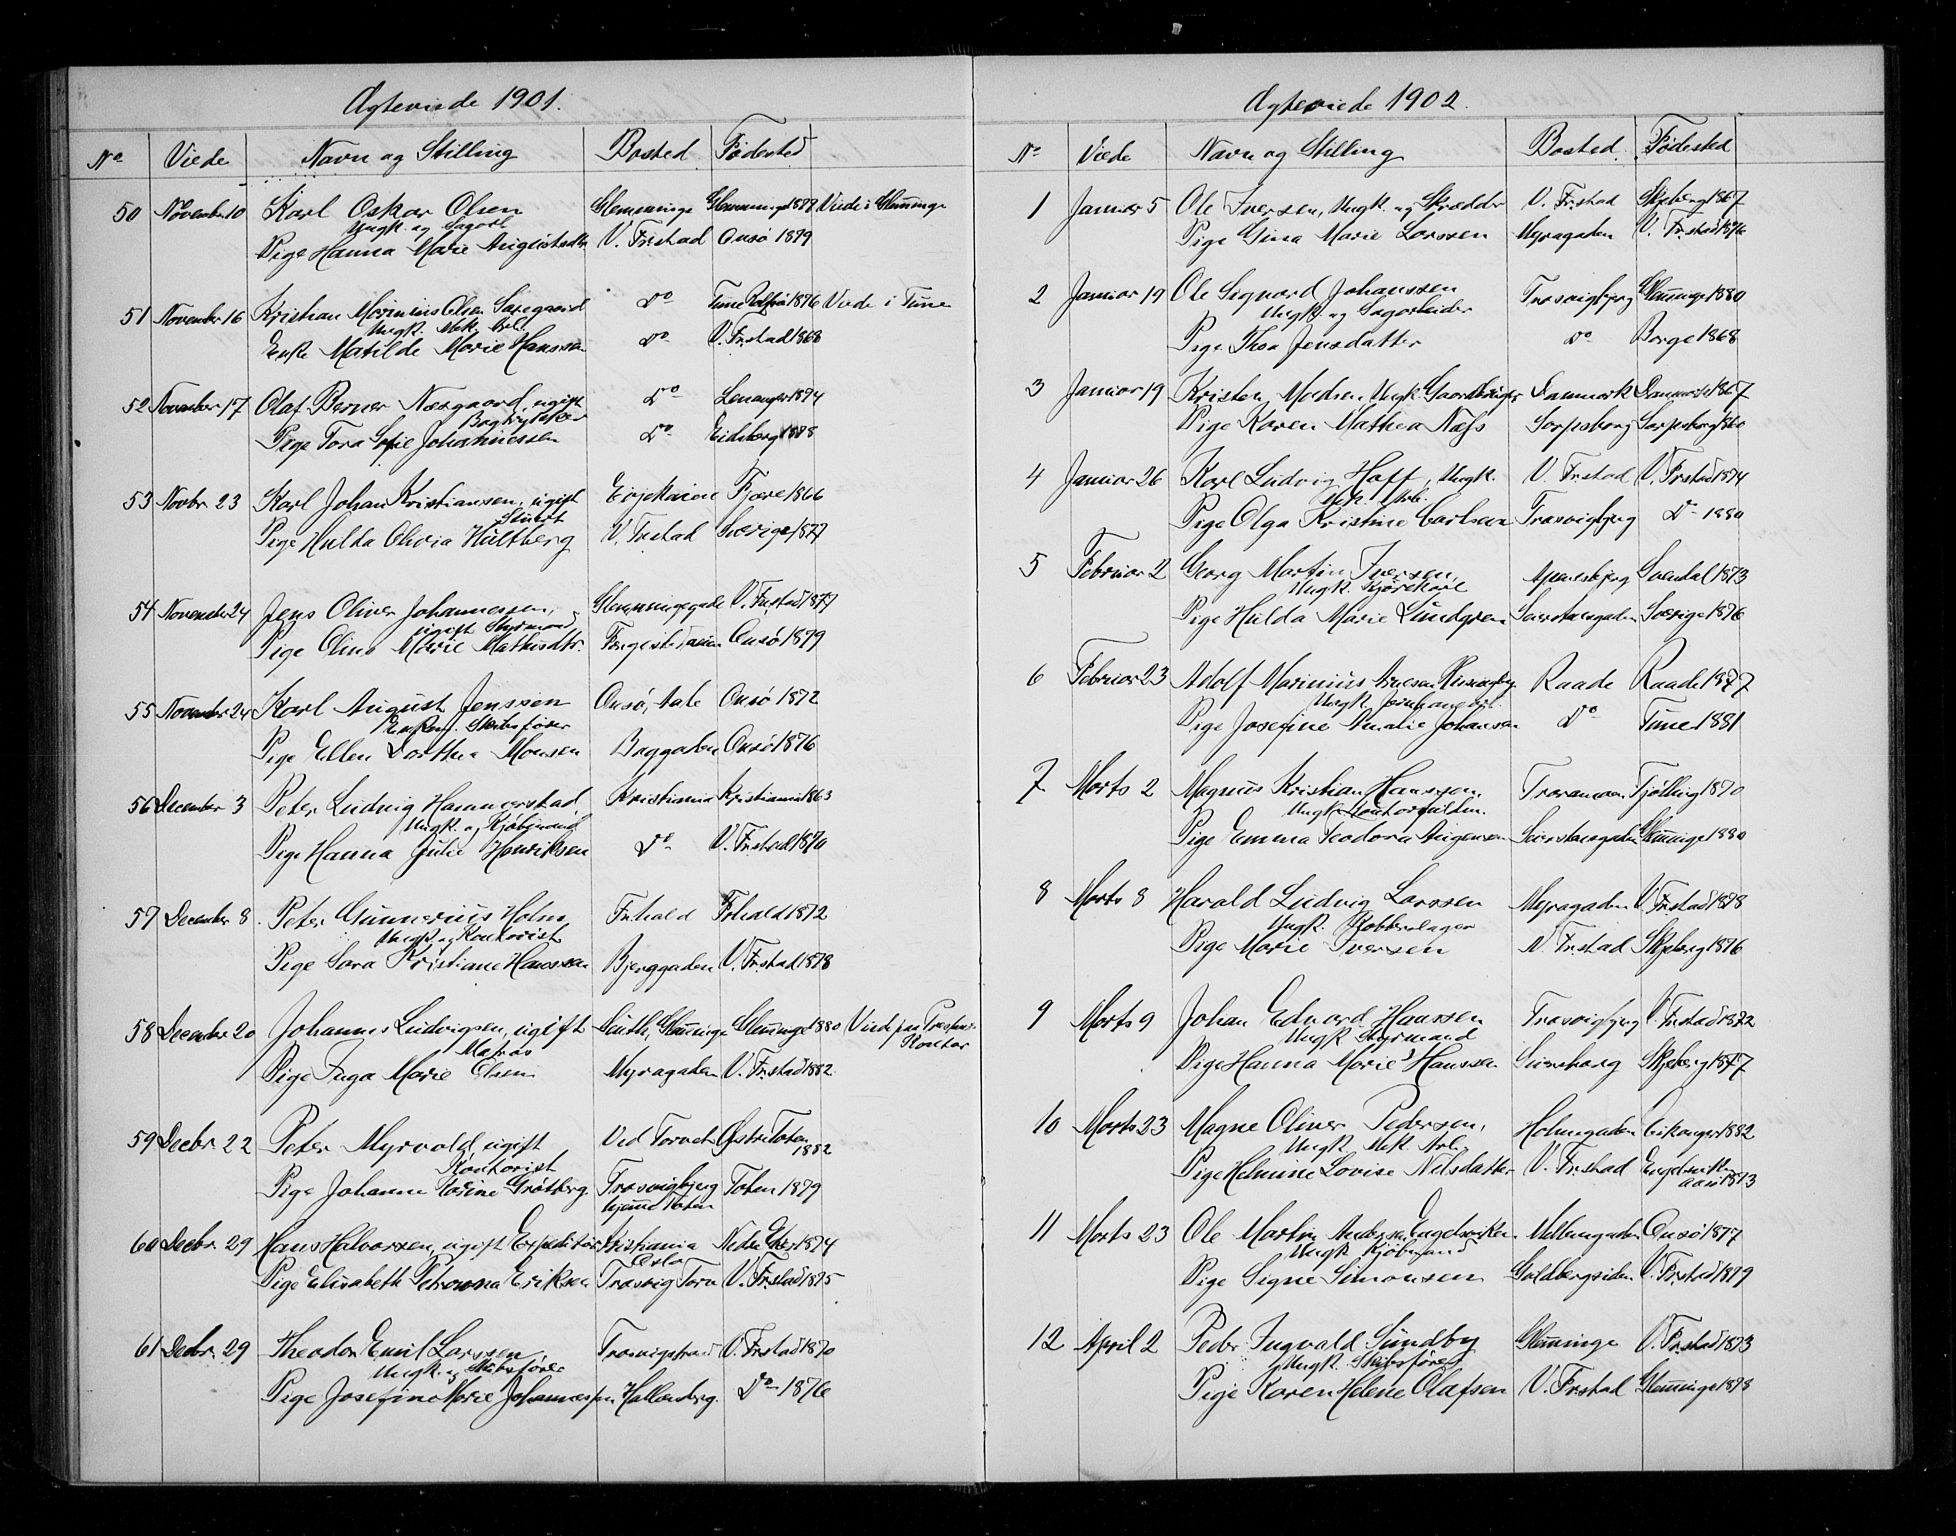 Ægteviede 1901.
No Viede Navn og Stilling Bosted Fødested
50 November 10 Karl Oskar Olsen Glemminge Glemminge Viede i Glemminge
Ungk. og Sagarb.
Pige Hanna Marie Augustsdtr. V. Fr.stad Onsø 1879
51 November 16 Kristian Marinius Olsen Do Tune 1876 Viede i Tune
Ungk. Mek. Arb.
Enke Matilde Marie Hanssen Do V. Fr.stad 1868
52 November 17 Olaf Berner Næsgaard, ugift Do Levanger 1874
Bogtrykker
Pige Tora Sofie Johannessen Do Eidsberg 1878
53 Novbr. 23 Karl Johan Kristiansen, ugift Fjære 1866
Stuert
Pige Hulda Olivia Hultberg V. Fr.stad Sverige 1877
54 November 24 Jens Oliver Johannessen, Glemmingegade V. Fr.stad 1877
ugift Styrmand
Pige Oline Marie Mathisdtr. Onsø 1879
55 November 24 Karl August Jenssen Onsø, Onsø 1872
Enkem. Skibsfører
Pige Ellen Dorthea Monsen Baggaden Onsø 1876
56 December 3 Peter Ludvig Hammerstad Kristiania Kristiania 1863
Ungk. og Kjøbmand
Pige Hanna Julie Henriksen Do V. Fr.stad 1870
57 December 8 Peter Gunnerius Holm, Fr.hald Fr.hald 1872
Ungk. og Kontorist
Pige Sara Kristiane Hanssen Bjerggaden V. Fr.stad 1878
58 December 20 Johannes Ludvigsen, ugift Glemminge Glemminge 1880 Viede paa
Matros Kontor
Pige Inga Marie Olsen Myragaden V. Fr.stad 1882
59 Decbr. 22 Peter Myrvold, ugift Ved Torvet Østre Toten
Kontorist 1882
Pige Johanne Karine Grøtberg Trosvigbjerg Toten 1879
hjem. Toten
60 Decbr. 29 Hans Halvorsen, ugift Expeditør Kristiania Nedre Eker 1874
Oslo
Pige Elisabeth Petrovna Eriksen Trosvig Torv V. Fr.stad 1875
61 Decbr. 29 Theodor Emil Larssen, V. Fr.stad 1870
Ungk. og Skibsfører
Pige Josefine Marie Johannessen Hallenberg. Do 1876
Ægteviede 1902.
No Viede Navn og Stilling Bosted Fødested
1 Januar 5 Ole Iversen, Ungk. og Skrædder V. Fr.stad Skjeberg 1867
Pige Gina Marie Larssen Myragaden V. Fr.stad 1876
2 Januar 19 Ole Sigvard Johanssen Trosvigbjerg Glemminge 1880
Ungk. og Sagarbeider
Pige Thea Jensdatter Do Borge 1868
3 Januar 19 Kristen Madsen Ungk. Gaardbruger Danmark Danmark 1867
Pige Karen Mathea Næss Sarpsborg Sarpsborg 1860
4 Januar 26 Karl Ludvig Hoff, Ungk. V. Fr.stad V. Fr.stad 1874
Mek. Arb.
Pige Olga Kristine Carlsen Trosvigbjerg Do 1880
5 Februar 2 Georg Martin Iversen, Apenesbjerg 1873
Ungk. Kjørekarl
Pige Hulda Marie Lundgren Sverige 1876
6 Februar 23 Adolf Marinius Raade Raade 1877
Ungk.
Pige Josefine Amalie Johansen Do Tune 1881
7 Marts 2 Magnus Kristian Hanssen, Tjølling 1870
Ungk.
Pige Emma Teodora Augensen Glemminge 1880
8 Marts 8 Harald Ludvig Larssen Myragaden V. Fr.stad 1878
Ungk. Kobberslager
Pige Marie Iversen V. Fr.stad Skjeberg 1876
9 Marts 9 Johan Edvard Hanssen Trosvigbjerg V. Fr.stad 1872
Ungk. Styrmand
Pige Hanna Marie Hanssen Skjeberg 1877
10 Marts 23 Magne Oliver Pedersen, Holmegaden 1882
Ungk. Mek. Arb.
Pige Helmine Lovise Nilsdatter V. Fr.stad 1873
11 Marts 23 Ole Martin Andersen Engelsviken Mellemgaden Onsø 1877
Ungk. Kjøbmand
Pige Signe Simonsen Goldbergsiden V. Fr.stad 1879
12 April 2 Peder Ingvald Sundby Glemminge V. Fr.stad 1873
Ungk. Skibsfører
Pige Karen Helene Olafsen V. Fr.stad Glemminge 1878